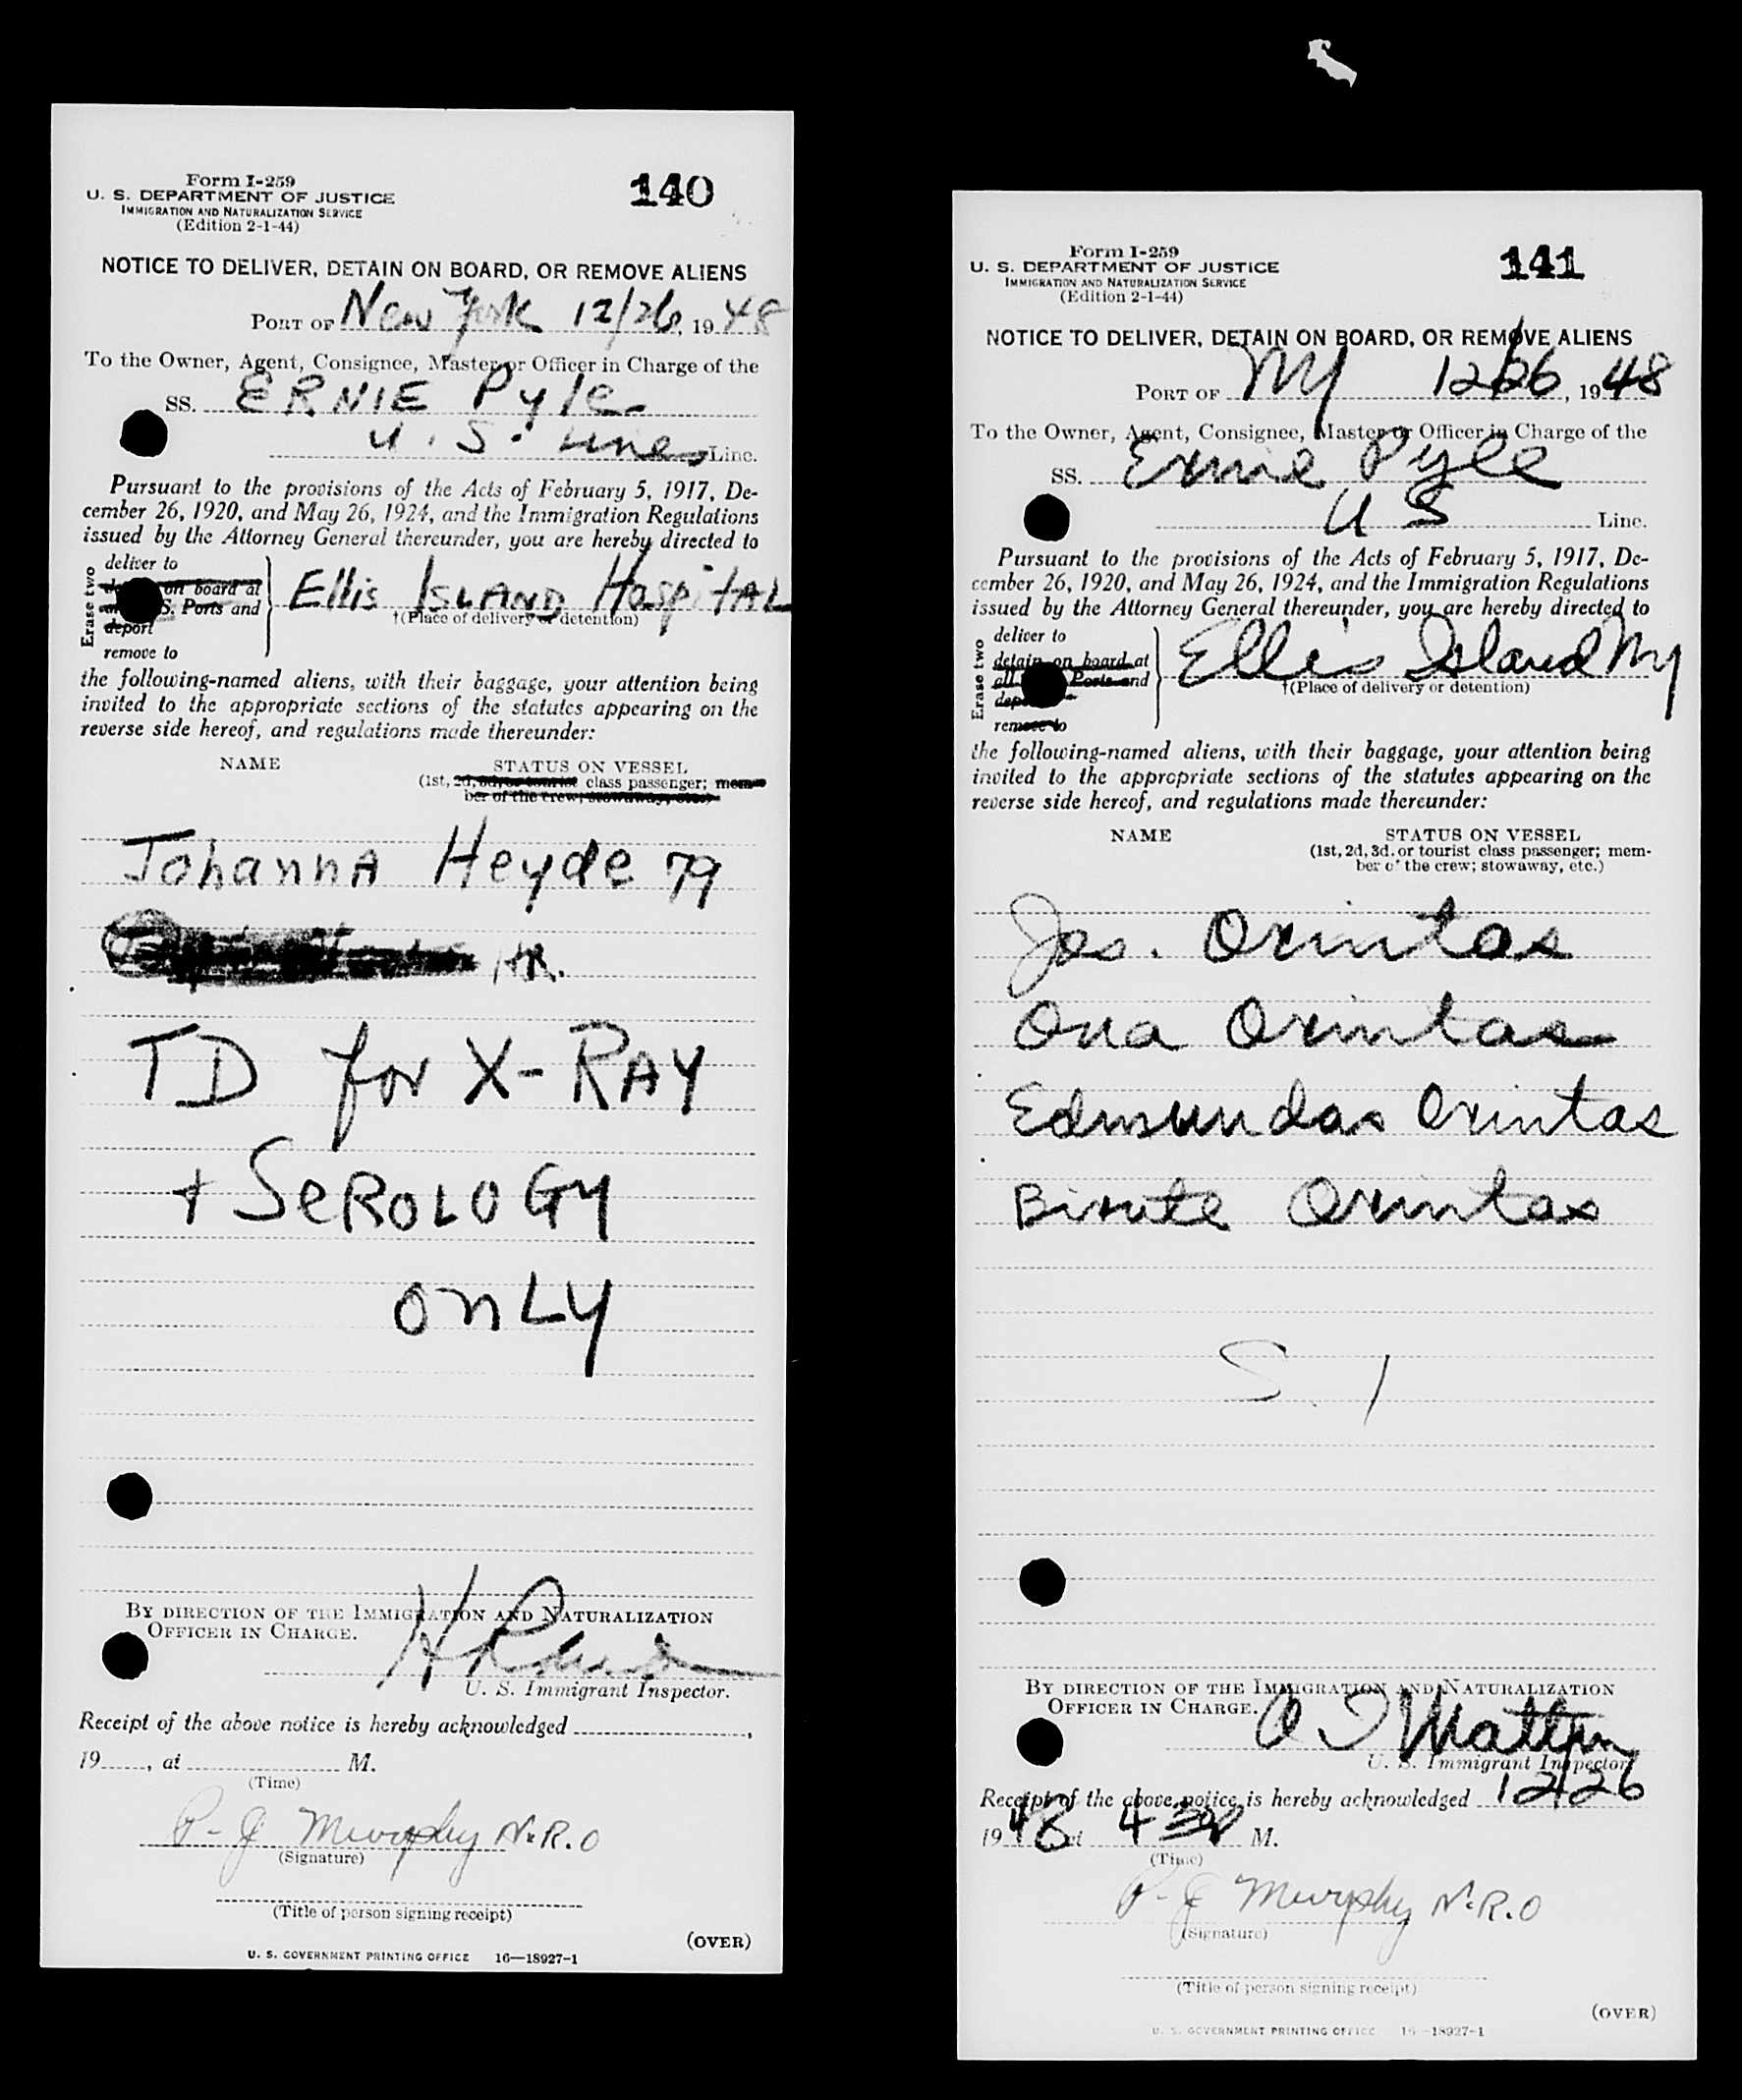 Form I-259
140
U. S. DEPARTMENT OF JUSTICE
IMMIGRATION AND NATURALIZATION SERVICE
(Edition 2-1-44)
NOTICE TO DELIVER, DETAIN ON BOARD, OR REMOVE ALIENS
PORT OF New York 12/26, 1948
To the Owner, Agent, Consignee, Master or Officer in Charge of the
SS. ERNIE Pyle
U. S. Lines Line.
Pursuant to the provisions of the Acts of February 5, 1917, De-
cember 26, 1920, and May 26, 1924, and the Immigration Regulations
issued by the Attorney General thereunder, you are hereby directed to
Erase two
deliver to
on board at
S. Ports and
deport
remove to
Ellis ISLAND HospitAL
†(Place of delivery or detention)
the following-named aliens, with their baggage, your attention being
invited to the appropriate sections of the statutes appearing on the
reverse side hereof, and regulations made thereunder:
NAME STATUS ON VESSEL
(1st, 2d, 3d, or tourist class passenger; mem-
ber of the crew; stowaway, etc.)
JohannA Heyde 79
TD for X-RAY
+ SeROLOGY
ONLY
BY DIRECTION OF THE IMMIGRATION AND NATURALIZATION
OFFICER IN CHARGE.
U. S. Immigrant Inspector.
Receipt of the above notice is hereby acknowledged
19, at M.
(Time)
P. J Murphy N.R.O
(Signature)
(Title of person signing receipt)
(OVER)
U. S. GOVERNMENT PRINTING OFFICE 16—18927-1
Form I-259
141
U. S. DEPARTMENT OF JUSTICE
IMMIGRATION AND NATURALIZATION SERVICE
(Edition 2-1-44)
NOTICE TO DELIVER, DETAIN ON BOARD, OR REMOVE ALIENS
PORT OF NY 12/26, 1948
To the Owner, Agent, Consignee, Master or Officer in Charge of the
SS. Ernie Pyle
U S Line.
Pursuant to the provisions of the Acts of February 5, 1917, De-
cember 26, 1920, and May 26, 1924, and the Immigration Regulations
issued by the Attorney General thereunder, you are hereby directed to
Erase two
deliver to
detain on board at
all Ports and
remove to
Ellis Island NY
†(Place of delivery or detention)
the following-named aliens, with their baggage, your attention being
invited to the appropriate sections of the statutes appearing on the
reverse side hereof, and regulations made thereunder:
NAME STATUS ON VESSEL
(1st, 2d, 3d, or tourist class passenger; mem-
ber of the crew; stowaway, etc.)
Jos. Orintas
Ona Orintas
Edmundas Orintas
Birute Orintas
S. I
BY DIRECTION OF THE IMMIGRATION AND NATURALIZATION
OFFICER IN CHARGE.
U. S. Immigrant Inspector.
Receipt of the above notice is hereby acknowledged 12/26
1948 at 4 30 M.
(Time)
P. J Murphy N.R.O
(Signature)
(Title of person signing receipt)
(OVER)
U. S. GOVERNMENT PRINTING OFFICE 16—18927-1